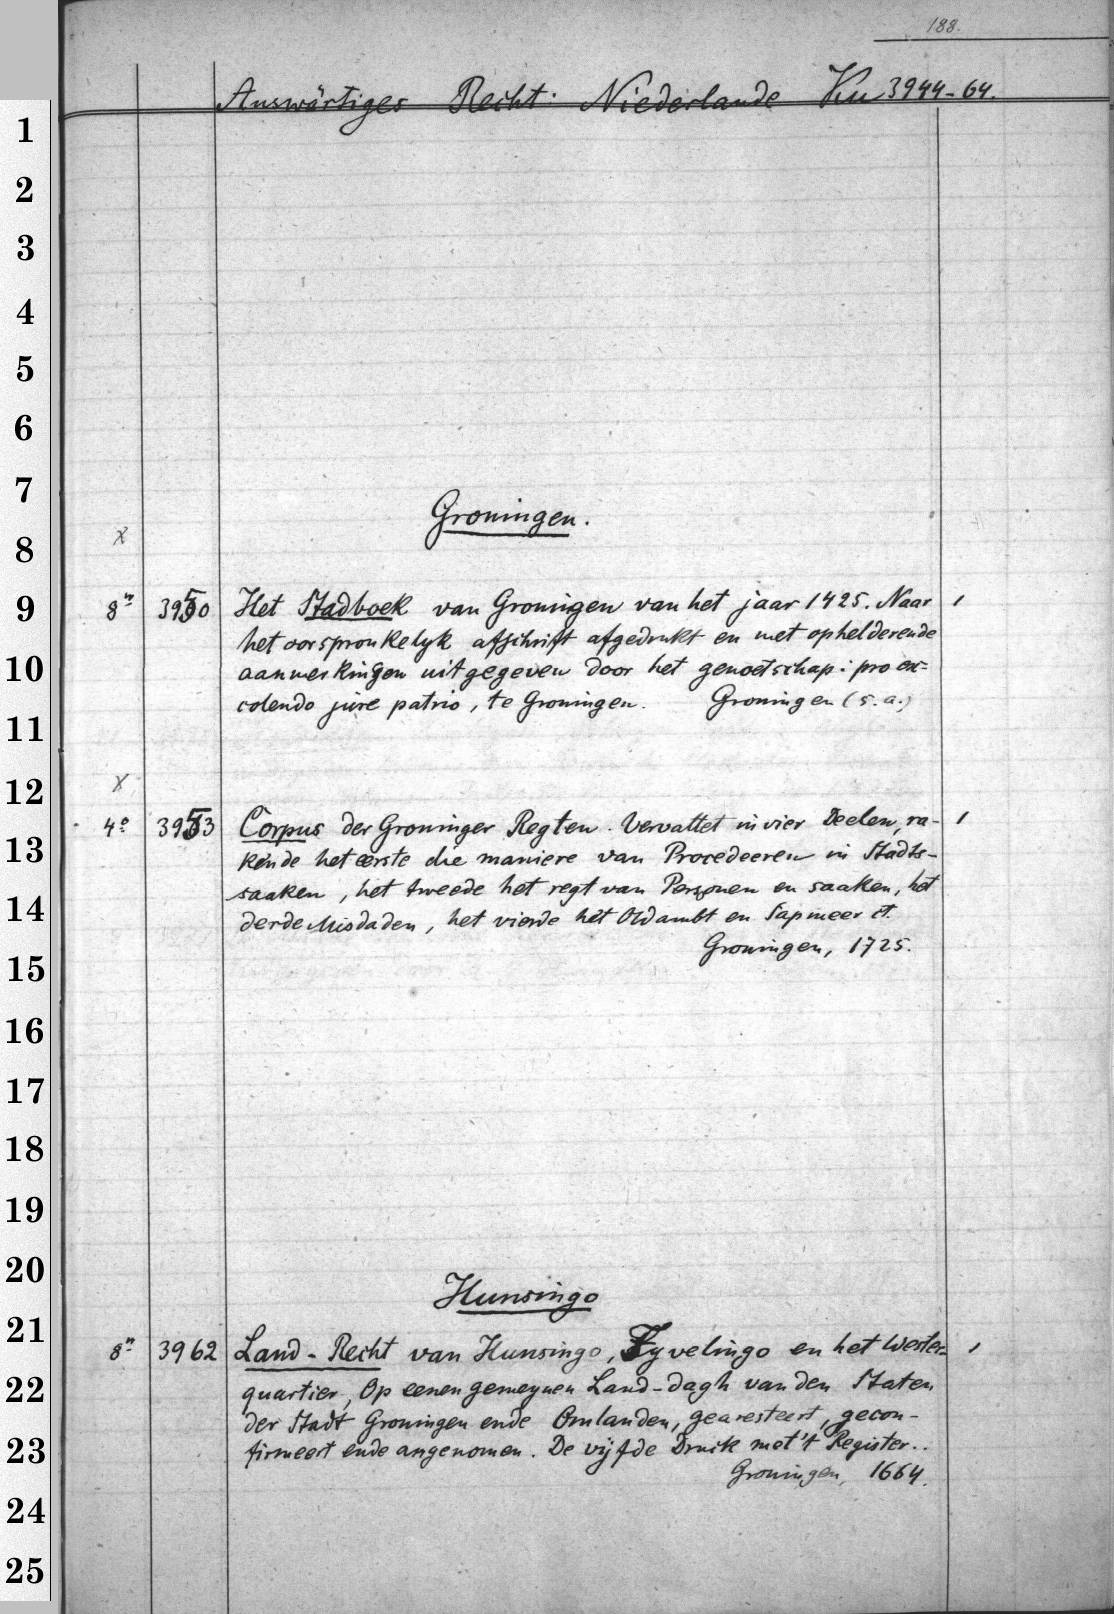 188.
Auswärtiges Recht: Niederlande Ku 3944-64.
1
2
3
4
5
6
7
Groningen.
x
8
9 8° 3950 Het Stadboek van Groningen van het jaar 1425. Naar 1
het oorspronkelyk afschrift afgedrukt en met ophelderende
10 aanmerkingen uitgegeven door het genoetschap: pro ex=
colendo jure patrio, te Groningen. Groningen (s. a.)
11
x
12
4° 3953 Corpus der Groninger Regten. Vervattet in vier Deelen, ra- 1
13 kende het eerste die maniere van Procedeeren in Stadts-
saaken, het tweede het regt van Personen en saaken, het
14 derde Misdaden, het vierde het Oldambt en Sapmeer et.
Groningen, 1725.
15
16
17
18
19
20
Hunsingo
21
8° 3962 Land-Recht van Hunsingo, Fyvelingo en het Wester= 1
22 quartier, Op eenen gemeynen Land-dagh van den Staten
der Stadt Groningen ende Omlanden, gearesteert, gecon-
23 firmeert ende angenomen. De vijfde Druck met 't Register..
Groningen, 1664.
24
25